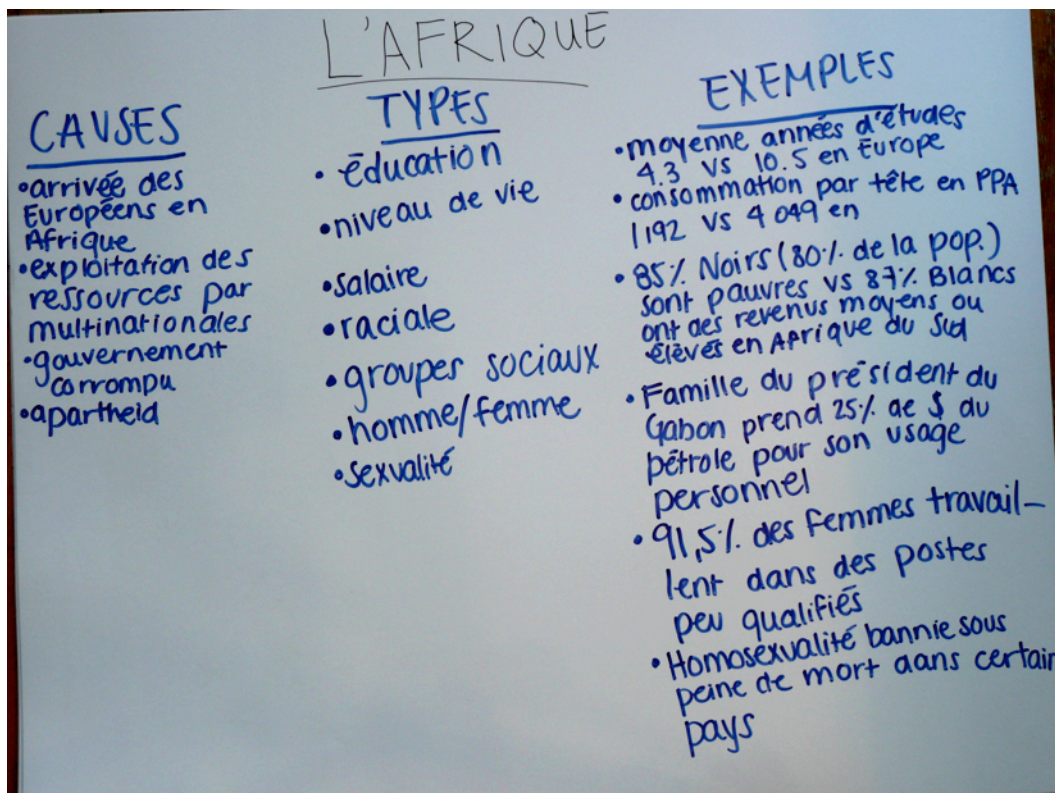 L'AFRIQUE
CAUSES
•arrivée des
Européens en
Afrique
•exploitation des
ressources par
multinationales
•gouvernement
corrompu
•apartheid
TYPES
• éducation
•niveau de vie
•salaire
•raciale
•groupes sociaux
•homme/femme
•sexualité
EXEMPLES
•moyenne années d'études
4.3 vs 10.5 en Europe
•consommation par tête en PPA
1192 vs 4 049 en
•85% Noirs (80% de la pop.)
sont pauvres vs 87% Blancs
ont des revenus moyens ou
élevés en Afrique du Sud
•Famille du président du
Gabon prend 25% de $ du
pétrole pour son usage
personnel
•91,5% des femmes travail-
lent dans des postes
peu qualifiés
•Homosexualité bannie sous
peine de mort dans certain
pays